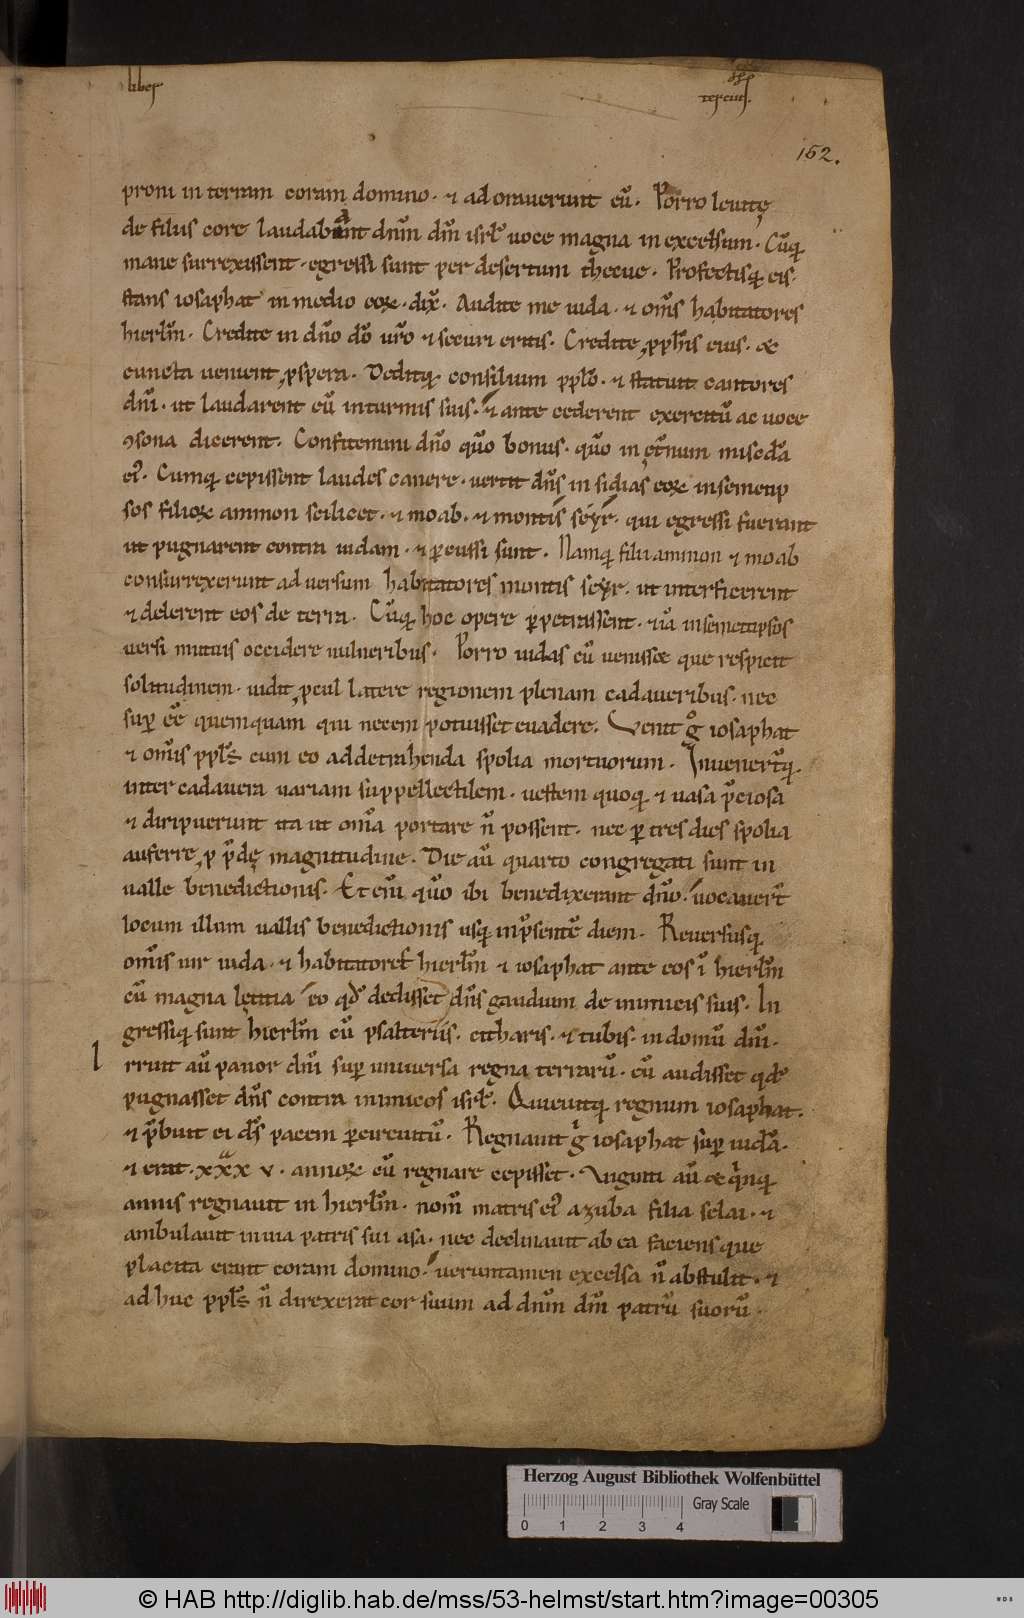 liber
tercius.
152.
proni in terram coram domino · ⁊ adoraverunt eū · Porro levitę
de filiis core laudabant dn̄m dm̄ isrł voce magna in excelsum · Cūq;
mane surrexissent · egressi sunt per desertum thecue · Profectisq; eis ·
stans iosaphat in medio eoꝝ · dix̄ · Audite me iuda · ⁊ om̄s habitatores
hierłm̄ · Credite in dn̄o dō vr̄o ⁊ securi eritis · Credite ꝓph̄is eius · &
cuncta venient ꝓspera · Deditq; consilium ppłō · ⁊ statuit cantores
dn̄i · ut laudarent eū in turmis suis · ⁊ ante cederent exercitū ac voce
ꝯsona dicerent · Confitemini dn̄o qūo bonus · qūo in ęt̄num misc̄dia
ei᷒ · Cumq; cepissent laudes canere · vertit dn̄s insidias eoꝝ in semetip
sos filioꝝ ammon scilicet · ⁊ moab · ⁊ montis seyr · qui egressi fuerant
ut pugnarent contra iudam · ⁊ ꝑcussi sunt · Namq; filii ammon ⁊ moab
consurrexerunt adversum habitatores montis seyr · ut interficerent
⁊ delerent eos de terra · Cūq; hoc opere ꝑpetrassent · ⁊iā in semetipsos
versi mutuis occidere vulneribus · Porro iudas cū venisset que respicit
solitudinem · vidit ꝓcul latere regionem plenam cadaveribus · nec
suꝑ ēē quemquam qui necem potuisset evadere · Venit gͦ iosaphat
⁊ om̄is ppłs̄ cum eo ad detrahenda spolia mortuorum · Invenert̄q;
inter cadavera variam suppellectilem · vestem quoq; ⁊ vasa p̄ciosa
⁊ diripuerunt ita ut om̄ia portare n̄ possent · nec ꝑ tres dies spolia
auferre ꝓ p̄dę magnitudine · Die aū quarto congregati sunt in
valle benedictionis · Et eni̅ qūo ibi benedixerant dn̄o · vocavert̄
locum illum vallis benedictionis usq; in p̄sentē diem · Reversusq;
om̄is vir iuda · ⁊ habitatores hierłm̄ ⁊ iosaphat ante eos ī hierłm̄
cū magna lętitia eo qd̄ dedisset dn̄s gaudium de inimicis suis · In
gressiq; sunt hierłm̄ cū psalteriis · citharis · ⁊ tubis · in domū dn̄i ·
I
rruit aū pavor dn̄i suꝑ universa regna terrarū · cū audisset qd̄
pugnasset dn̄s contra inimicos isrł · Quievitq; regnum iosaphat ·
⁊ p̄buit ei ds̄ pacem ꝑ circuitū · Regnavit gͥ iosaphat suꝑ iudā ·
⁊ erat · xxx v · annoꝝ cū regnare cepisset · Viginti aū & qͥnq;
annis regnavit in hierłm̄ · nom̄ matris ei᷒ azuba filia selai · ⁊
ambulavit in via patris sui asa · nec declinavit ab ea faciens que
placita erant coram domino · veruntamen excelsa n̄ abstulit · ⁊
adhuc ppłs̄ n̄ direxerat cor suum ad dn̄m dm̄ patrū suorū ·
Herzog August Bibliothek Wolfenbüttel
Gray Scale
0 1 2 3 4
© HAB http://diglib.hab.de/mss/53-helmst/start.htm?image=00305